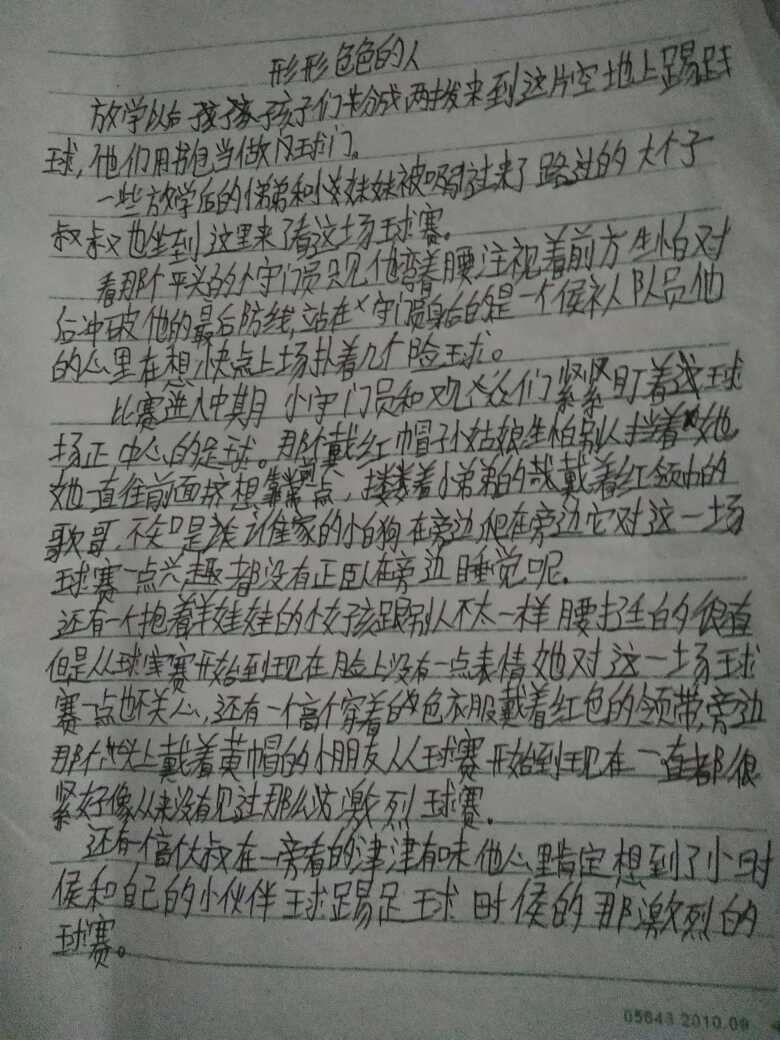 形形色色的人
放学以后孩子们分成两拨来到这片空地上踢足
球,他们用书包当做球门。
一些放学后的弟弟和小妹妹被吸引过来了路过的大个子
叔叔也坐到这里来了看这场球赛。
看那个平头的小守门员只见他弯着腰注视着前方生怕对
后冲破他的最后防线,站在守门员身后的是一个候补队员他
的心里在想快点上场扑着几个险球。
比赛进入中期 小守门员和观众们紧紧盯着这球
场正中心的足球。那个戴红帽子小姑娘生怕别人挡着她
她一直往前面挤想靠前点,搂着小弟弟的戴着红领巾的
歌哥,不知是谁家的小白狗在旁边,他在旁边它对这一场
球赛一点兴趣都没有正卧在旁边睡觉呢.
还有一个抱着洋娃娃的小女孩跟别人不太一样腰挺的很直
但是从球赛开始到现在脸上没有一点表情她对这一场球
赛一点也不关心,还有一个高个穿着的色衣服戴着红色的领带,旁边
那个头上戴着黄帽的小朋友从球赛开始到现在一直都很
紧好像从来没有见过那么激烈球赛.
还有个高个大叔在一旁看的津津有味他心里肯定想到了小时
侯和自己的小伙伴球踢足球时侯的那激烈的
球赛。
05643 2010.09